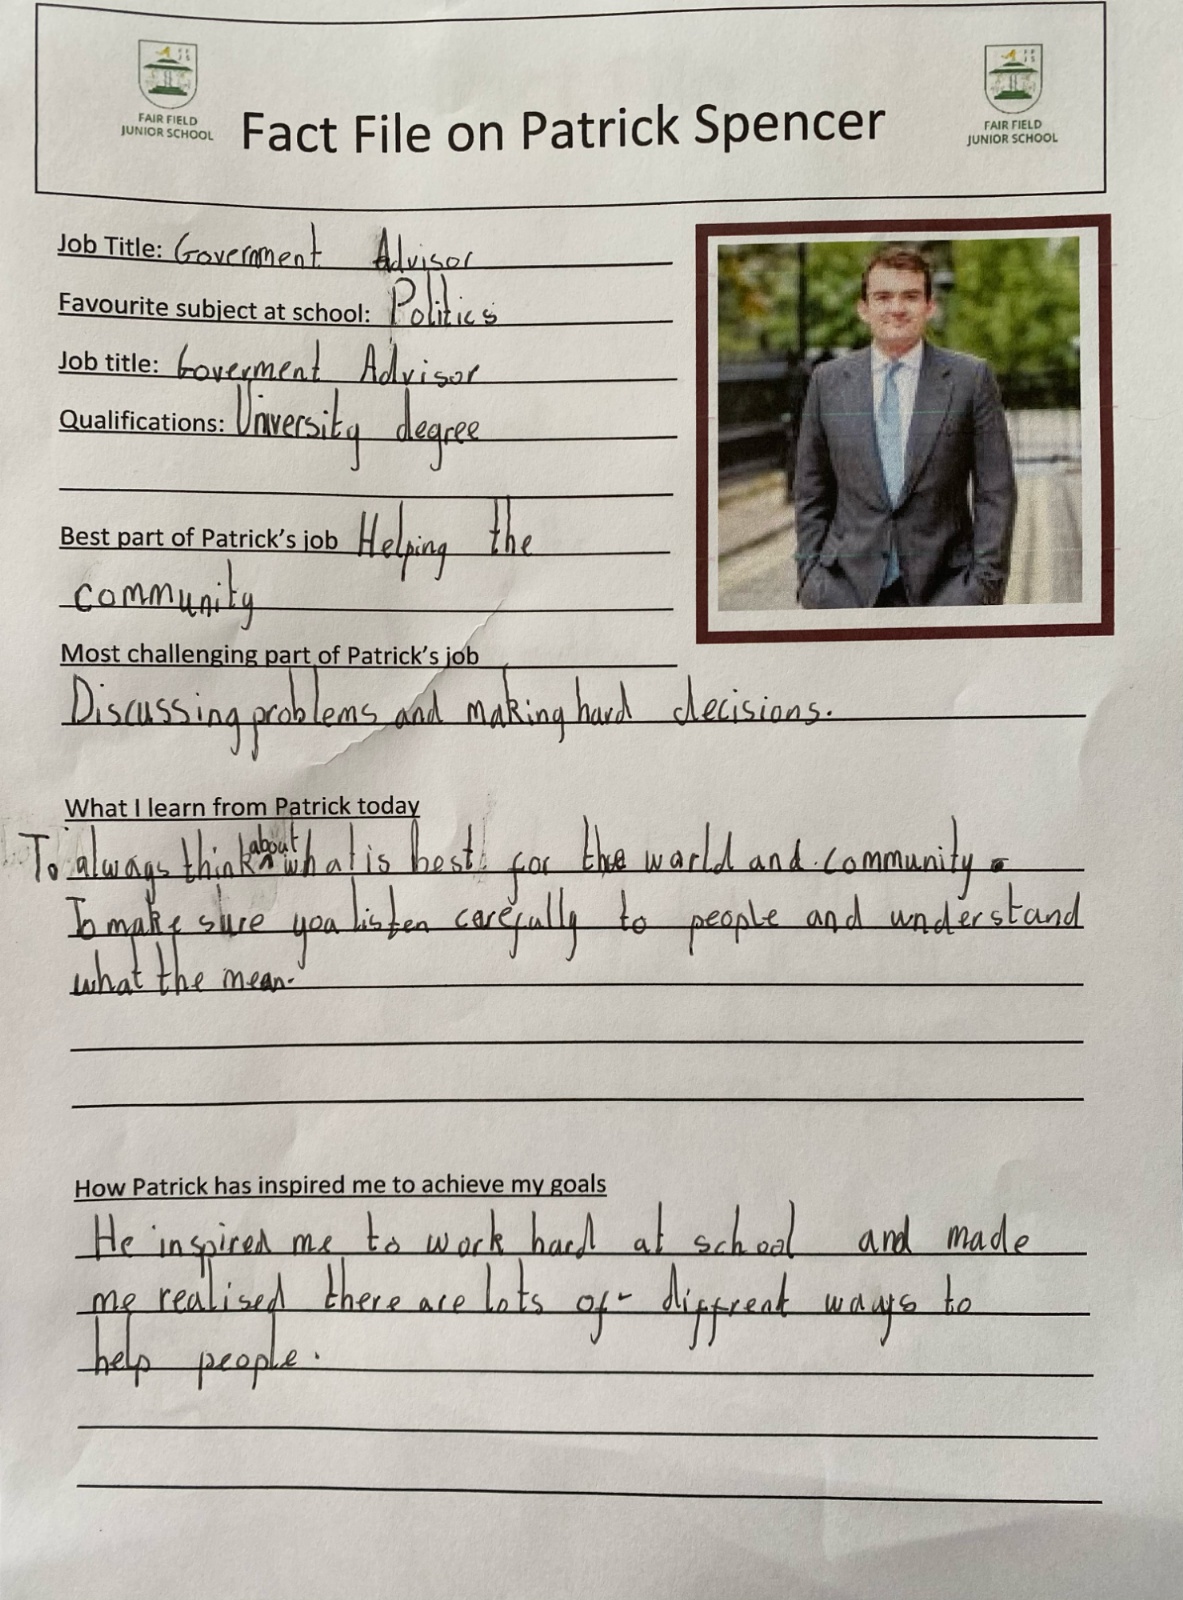 FAIR FIELD
JUNIOR SCHOOL
Fact File on Patrick Spencer
FAIR FIELD
JUNIOR SCHOOL
Job Title: Government Advisor
Favourite subject at school: Politics
Job title: Goverment Advisor
Qualifications: University degree
Best part of Patrick's job Helping the
community
Most challenging part of Patrick's job
Discussing problems and making hard decisions.
What I learn from Patrick today
To always think about what is best for the world and community.
To make sure you listen carefully to people and understand
what the mean.
How Patrick has inspired me to achieve my goals
He inspired me to work hard at school and made
me realised there are lots of diffrent ways to
help people.